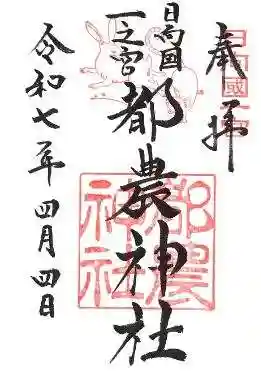 奉拝
日向國
一之宮
都農神社
令和七年四月四日
日向國一宮
都農
神社